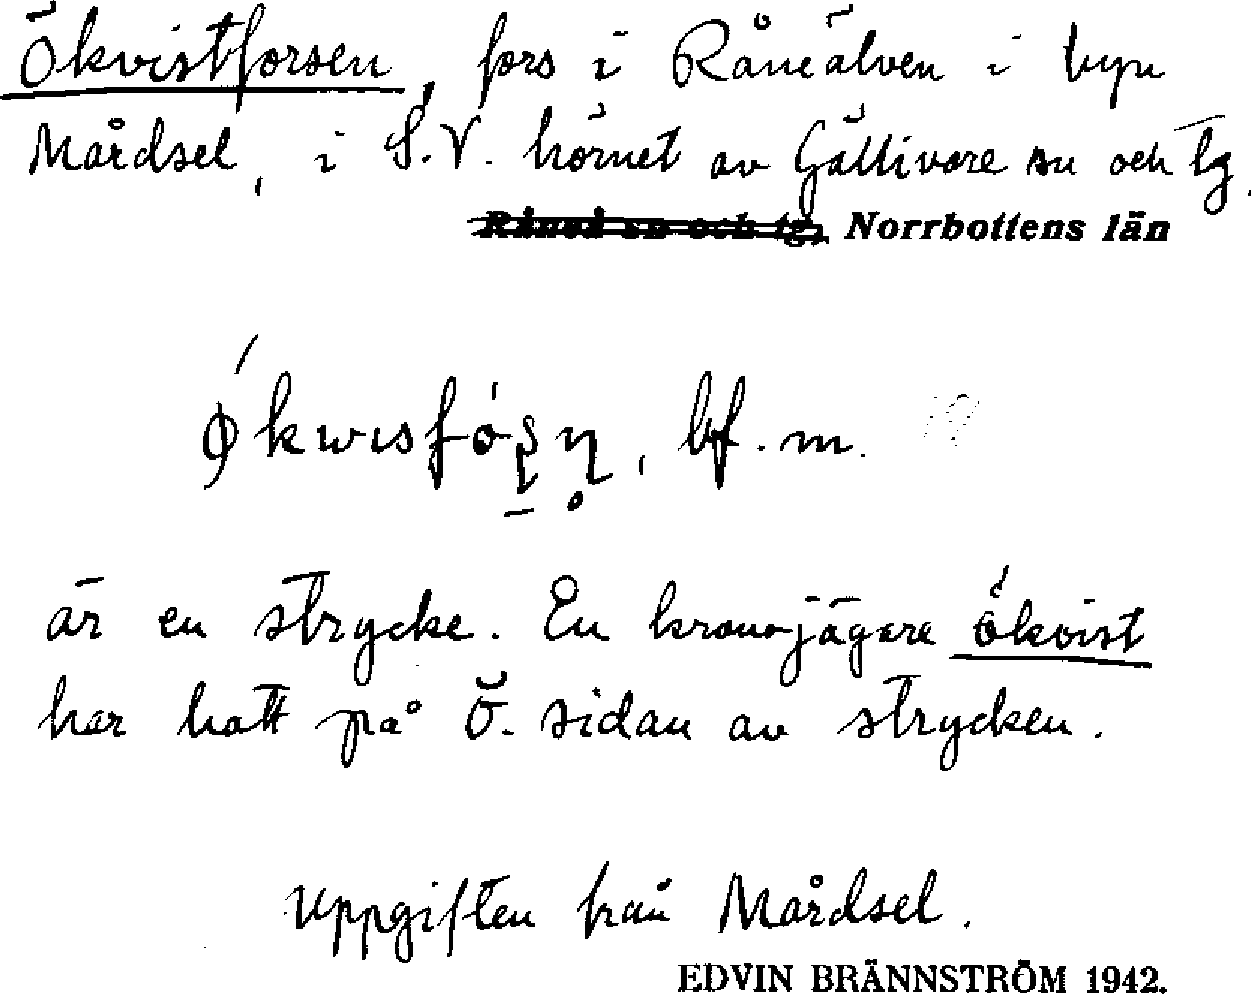 Ökvistforsen, fors i Råneälven i byn
Mårdsel, i S.V. hörnet av Gällivare sn och tg.
Råneå sn och tg, Norrbottens län
ǿkwɩsfó̱ʂn̥, bf. m.
är en strycke. En kronojägare Ökvist
har hatt på Ö. sidan av strycken.
Uppgiften från Mårdsel.
EDVIN BRÄNNSTRÖM 1942.